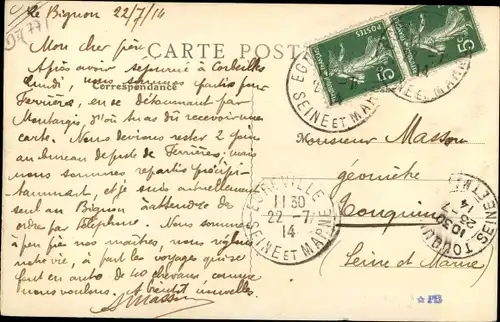 Le Bignon 22/7/14
Mon cher père
CARTE POSTALE
Après avoir séjourné à Corbeilles
lundi, nous sommes partis pour
Correspondance
Ferrières, en se détournant par
Montargis, d'où tu as dû recevoir une
carte. Nous devions rester 2 jours
au bureau de poste de Ferrières; mais
nous sommes repartis précipi-
tamment, et je suis actuellement
seul au Bignon attendre de
ordres par téléphone. Nous sommes
à peu près nos maîtres, nous
notre vie, à part les voyages qui se
font en auto de 40 chevaux comme
nous voulons. A bientôt nouvelles
AMasson
POSTES
5c
5c
EGREVILLE
SEINE ET MARNE
EGREVILLE
11 30
22 -7
14
SEINE ET MARNE
Monsieur Masson
géomètre
Touquin
Seine et Marne
TOUQUIN
10 30
23 -7
14
SEINE ET M
PB